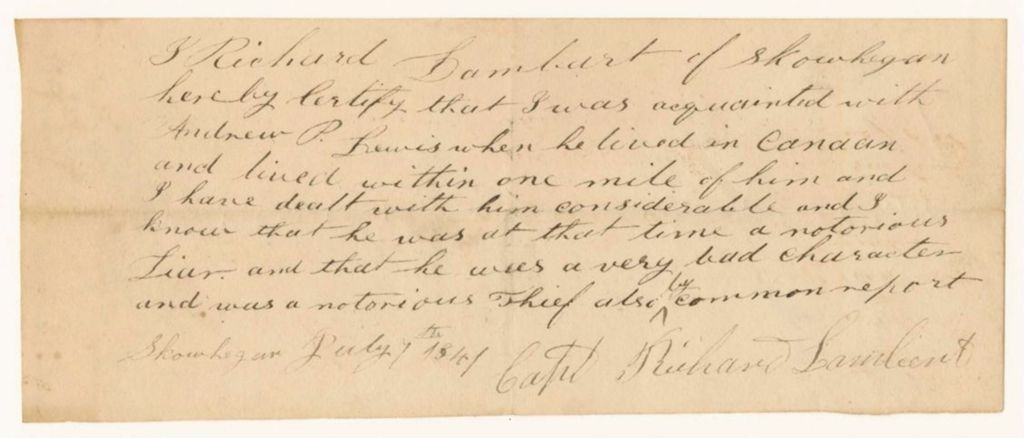 I Richard Lambert of Skowhegan
hereby Certify that I was acquainted with
Andrew P. Lewis when he lived in Canaan
and lived within one mile of him and
I have dealt with him considerable and I
know that he was at that time a notorious
Liar and that he was a very bad character
and was a notorious Thief also by common report
Skowhegan July 7th 1841
Capt Richard Lambert